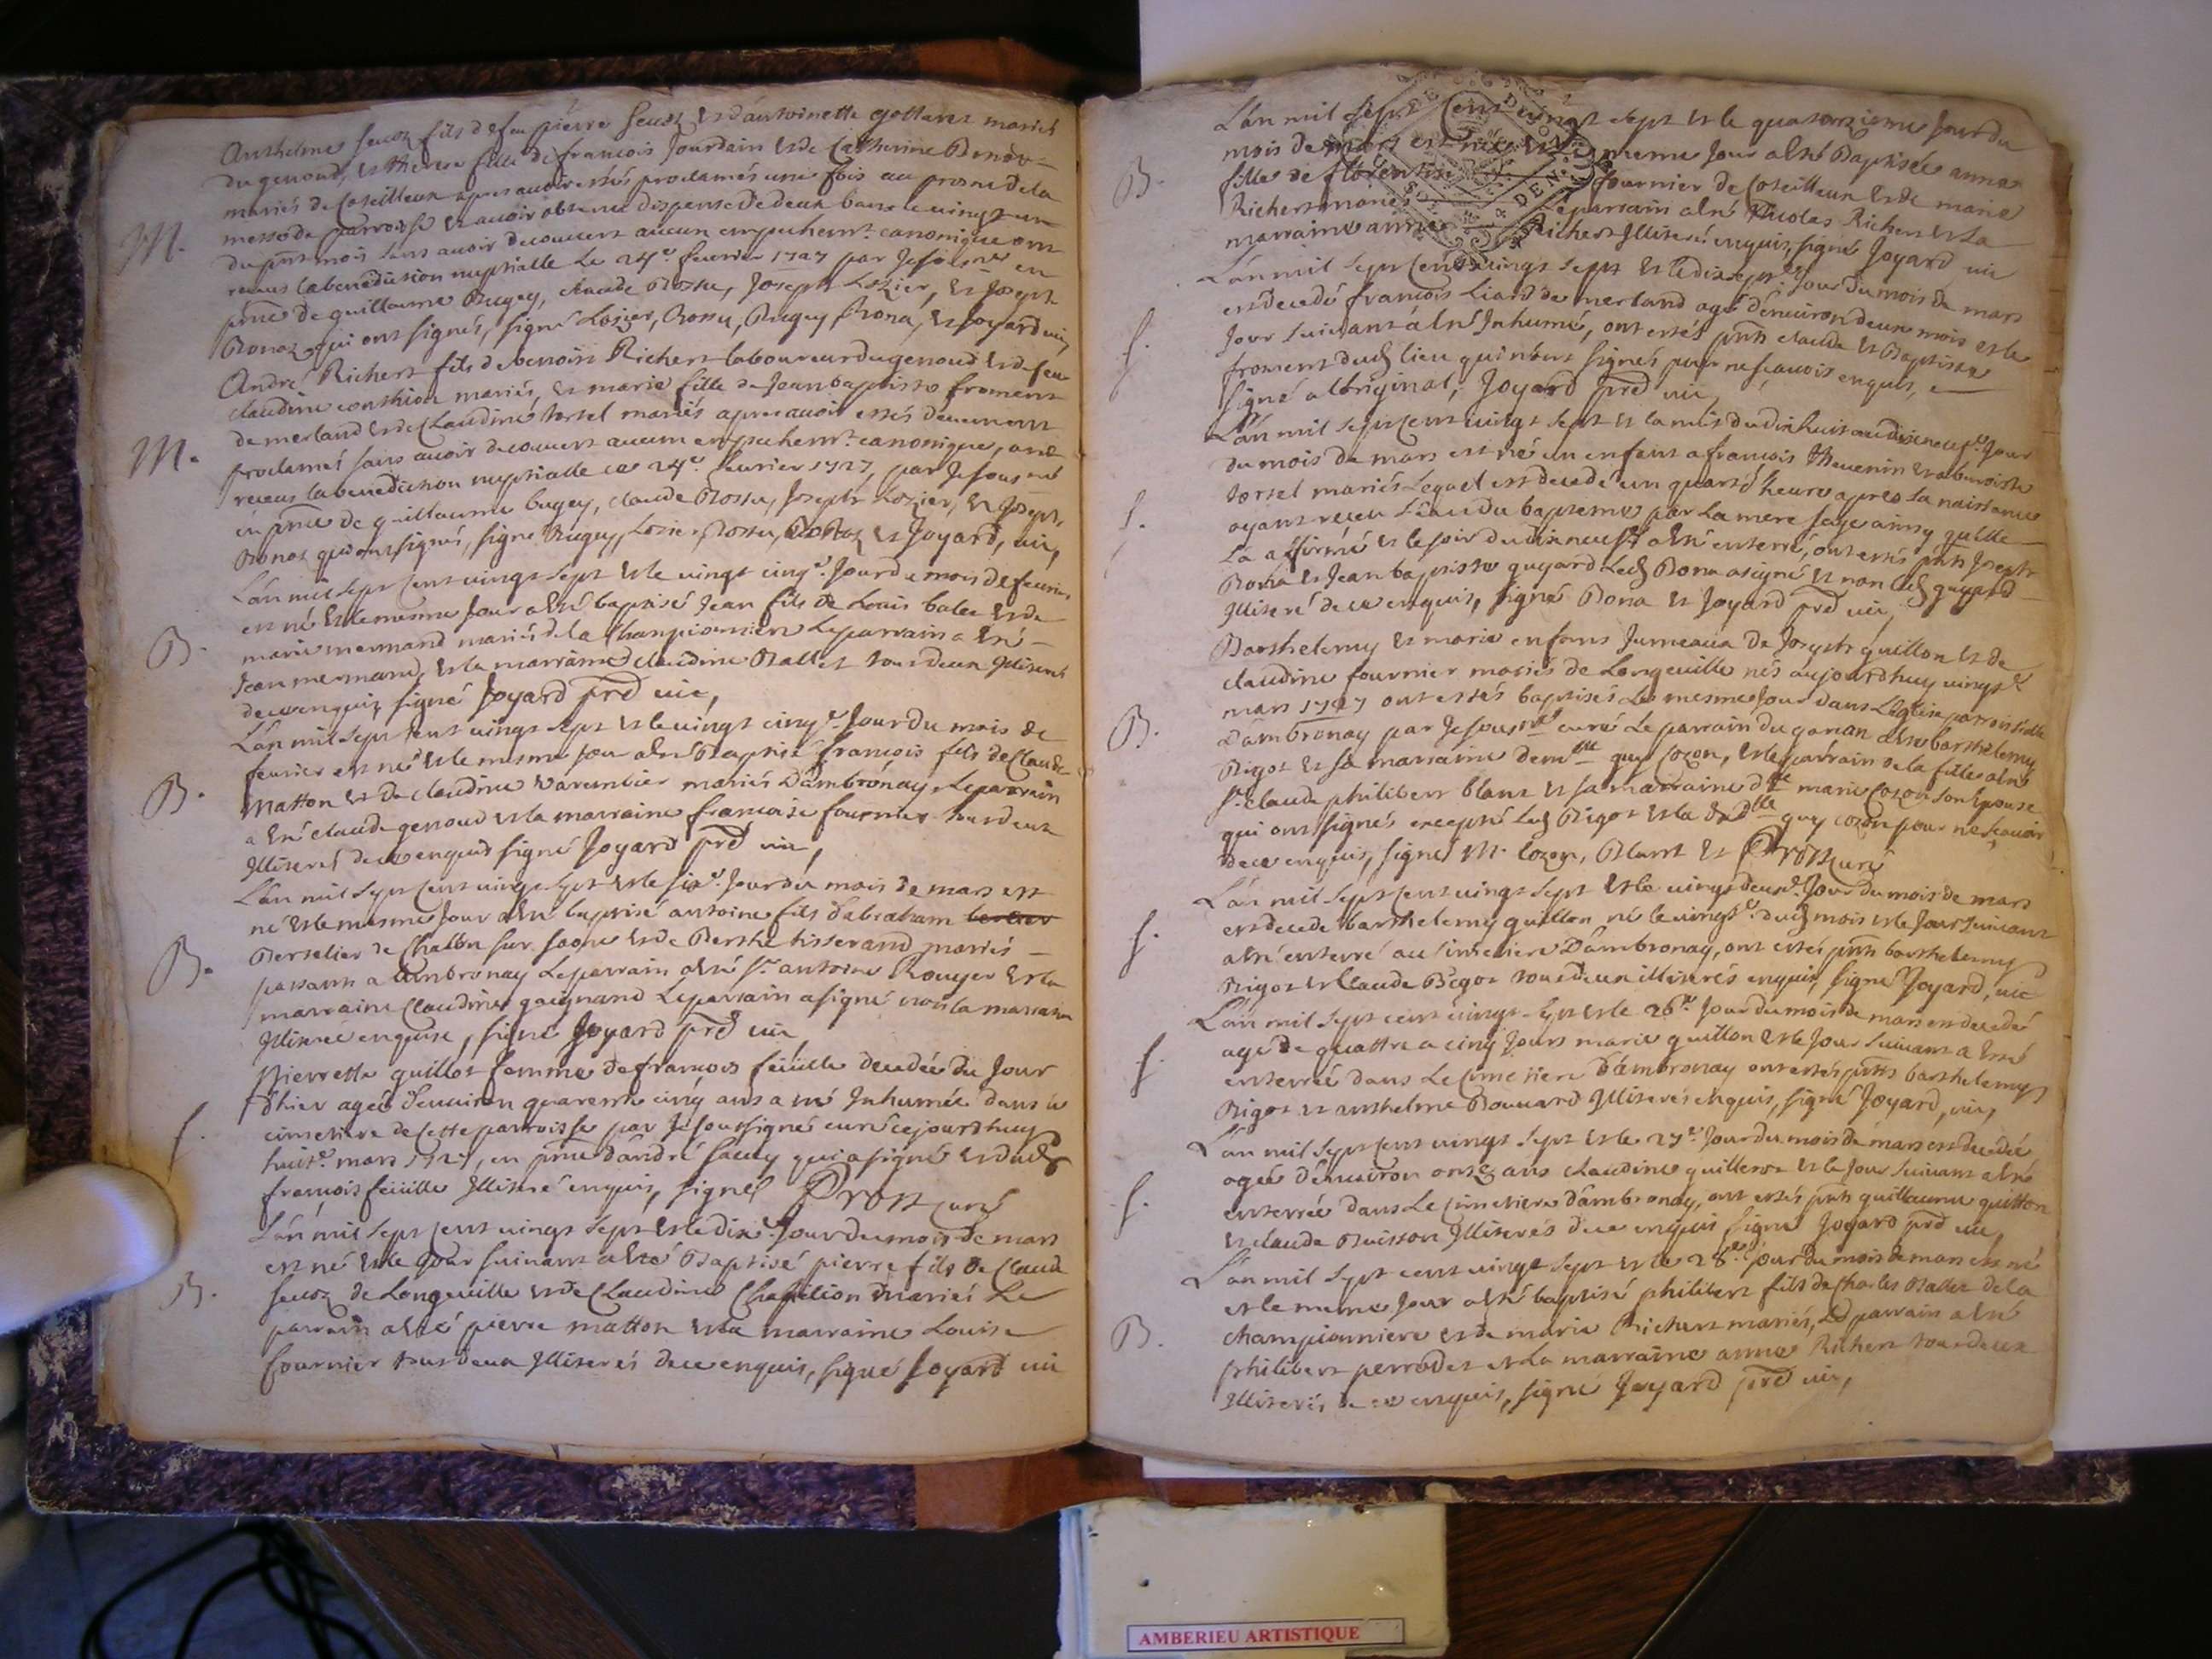 Anthelme seuoz fils de feu pierre seuoz et d'antoinette gottaret mariés
du genoud, et Therese fille de francois Jourdain et de Catherine Benoz
mariés de Coteilleux apres auoir estés proclamés une fois au prosne de la
messe de parroisse et auoir obtenu dispense de deux bans le uingt un
du pnt mois sans auoir decouuert aucun empeschemt. canonique ont
receus la benediction nuptialle le 24e. feurier 1727 par Je sousné en
pnce de guillaume Bugey, claude Rossu, Joseph Lozier, et Joseph
Bonaz qui ont signés, signé Lozier, Rossu, Bugey, Bona, et Joyard uic,
M.
André Richert fils de benoist Richert laboureur du genoud et de feu
claudine mariés, et marie fille de Jean baptiste froment
de merland et de Claudine tortel mariés apres auoir estés deuement
proclamés sans auoir decouuert aucun empechemt. canonique, ont
receus la benediction nuptialle ce 24e. feurier 1727, par Je sousné
en pnce de guillaume bugey, claude Rossu, Joseph Lozier, et Joseph
Bonaz qui ont signés, signé Bugey, Lozier, Rossu, Bonaz et Joyard, uic,
M.
L'an mil sept cent uingt sept et le uingt cinqe. Jour du mois de feurier
est né et le mesme Jour a esté baptisé Jean fils de Louis balet et de
marie mermand mariés de la Championniere Le parrain a esté
Jean mermand, et la marraine claudine Ballet tous deux Illiterés
de ce enquis, signé Joyard prê uic,
B.
L'an mil sept cent uingt sept et le uingt cinqe. Jour du mois de
feurier est né et le mesme Jour a esté Baptisé francois fils de Claude
Matton et de claudine Varembier mariés D'ambronay, Le parrain
a esté claude genoud et la marraine francoise fournier tous deux
Illiterés de ce enquis signé Joyard prê uic,
B.
L'an mil sept cent uingt sept et le sixe. Jour du mois de mars est
né et le mesme Jour a esté baptisé antoine fils d'abraham
Bertelier de Challon sur saone et de Berthe tisserand mariés
passants a ambronay Le parrain a esté sr. antoine Rouyer et la
marraine Claudine gaignand Le parrain a signé non la marraine
Illiterée enquise, signé Joyard prê uic,
B.
Pierrette guillot femme de francois feüille decedée du Jour
d'hier agée d'enuiron quarente cinq ans a esté Inhumée dans le
cimetiere de cette parroisse par Je soussigné curé ce jourdhuy
huite. mars 1727, en pnce d'andré sauey qui a signé et dud
francois feüille Illiteré enquis, signé Prost curé
f.
L'an mil sept cent uingt sept et le dixe. Jour du mois de mars
est né et le Jour suiuant a esté Baptisé pierre fils de Claude
seuoz de Longeuille et de Claudine Chapelion mariés Le
parrain a esté pierre matton et la marraine Louise
fournier tous deux Illiterés de ce enquis, signé Joyard uic
B.
L'an mil sept cent uingt sept et le quatorzieme Jour du
mois de mars est née et le meme Jour a esté Baptisée anne
fille de florentin fournier de Coteilleux et de marie
Richert mariés Le parrain a esté Nicolas Richert et la
marraine anne Richert Illiterés enquis, signé Joyard uic
B.
4 DEN.
L'an mil sept cent uingt sept et le dixsepte. Jour du mois de mars
est decedé francois Liard de merland agé d'enuiron deux mois et le
Jour suiuant a esté Inhumé, ont estés pnts claude et Baptiste
froment dud lieu qui n'ont signés pour ne scauoir enquis,
signé a l'original, Joyard prê uic,
f.
L'an mil sept cent uingt sept et la nuit du dixhuit au dixneufe. Jour
du mois de mars est né un enfant a francois Theuenin et a benoiste
tortel mariés Lequel est decedé un quart d'heure apres sa naissance
ayant receu l'eau du bapteme par la mere sage ainsy qu'elle
l'a affirmé et le soir du dixneufe a esté enterré, ont estés pnts Joseph
Bona et Jean baptiste guyard Led Bona a signé et non led guyard
Illiteré de ce enquis, signé Bona et Joyard prê uic,
f.
Barthelemy et marie enfans Jumeaux de Joseph guillon et de
claudine fournier mariés de Longeuille nés aujourdhuy uingte.
mars 1727 ont estés baptisés les mesme Jour dans l'eglise parroissialle
d'ambronay par Je sousné curé Le parrain du garcon a esté barthelemy
Bigot et sa marraine demlle guy cozon, et le parrain de la fille a esté
sr. claude philibert blanc et sa marraine dlle marie Cozon son Epouse
qui ont signés excepté led Bigot et la d dlle guy cozon pour ne scauoir
de ce enquis, signé M. cozon, Blanc et Prost curé
B.
L'an mil sept cent uingt sept et le uingt deuxe. Jour du mois de mars
est decedé barthelemy guillon né le uingte. dud mois et le Jour suiuant
a esté enterré au cimetiere D'ambronay, ont estés pnts barthelemy
Bigot et Claude Bigot tous deux illiterés enquis, signé Joyard, uic
f.
L'an mil sept cent uingt sept et le 26e. Jour du mois de mars est decedée
agée de quattre a cinq Jours marie guillon et le Jour suiuant a esté
enterrée dans Le cimetiere d'ambronay ont estés pnts barthelemy
Bigot et anthelme Bouuard Illiterés enquis, signé Joyard, uic,
f.
L'an mil sept cent uingt sept et le 27e. Jour du mois de mars est decedée
agée d'enuiron onze ans claudine guillerot et le Jour suiuant a esté
enterrée dans Le Cimetiere d'ambronay, ont estés pnts guillaume guitton
et claude Buisson Illiterés de ce enquis signé Joyard prê uic,
f.
L'an mil sept cent uingt sept et le 28e. Jour du mois de mars est né
et le meme Jour a esté baptisé philibert fils de Charles Ballet de la
championniere et de marie Richert mariés, Le parrain a esté
philibert perrodet et la marraine anne Richert tous deux
Illiterés de ce enquis, signé Joyard prê uic,
B.
AMBERIEU ARTISTIQUE